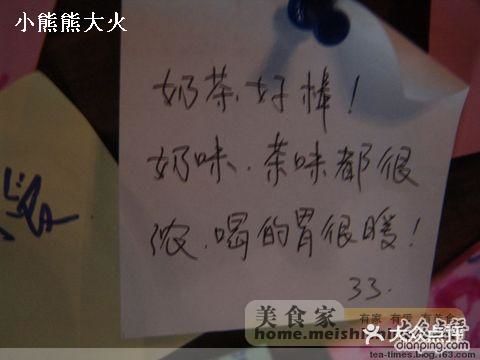 小熊熊大火
奶茶好棒！
奶味、茶味都很
浓、喝的胃很暖！
33.
美食家
home.meishi
大众点评
dianping.com
tea-times.blog.163.com